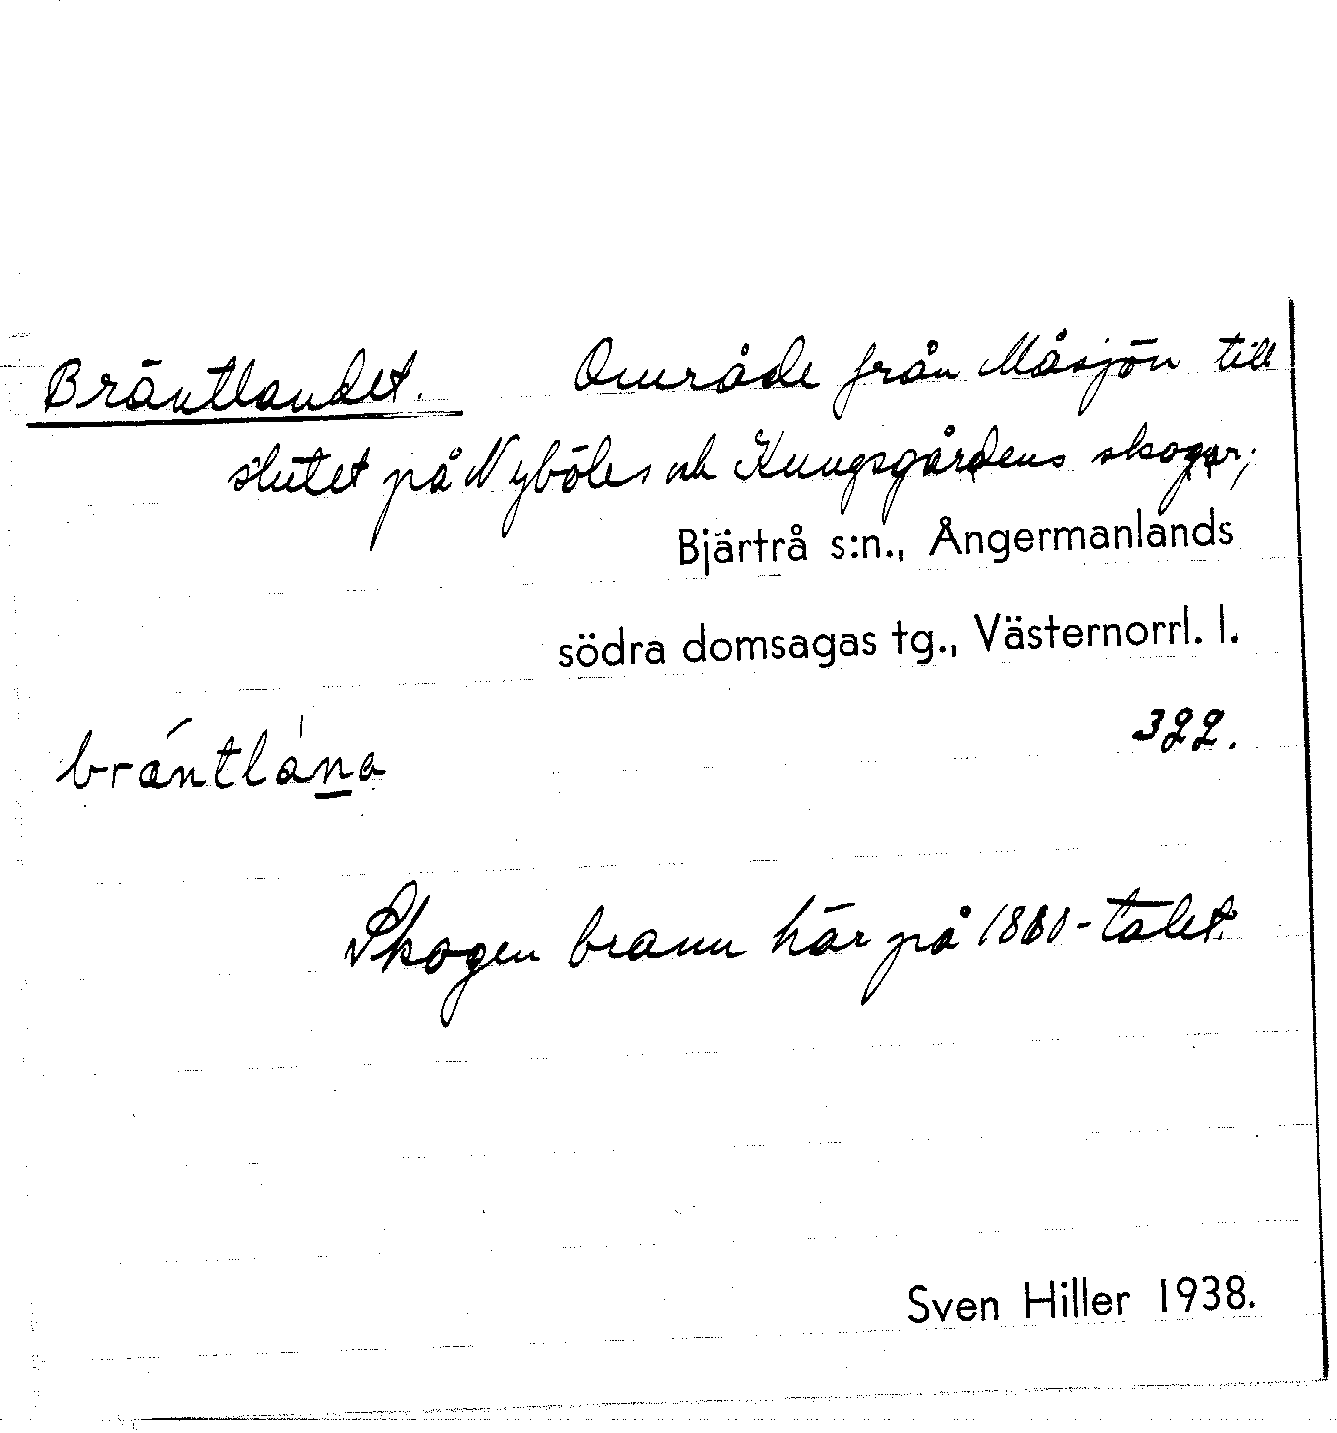 Bräntlandet. Område från Måsjön till
slutet på Nyböles och Kungsgårdens skogar;
Bjärtrå s:n., Ångermanlands
södra domsagas tg., Västernorrl. l.
322.
bräntlána
Skogen brann här på 1860-talet
Sven Hiller 1938.